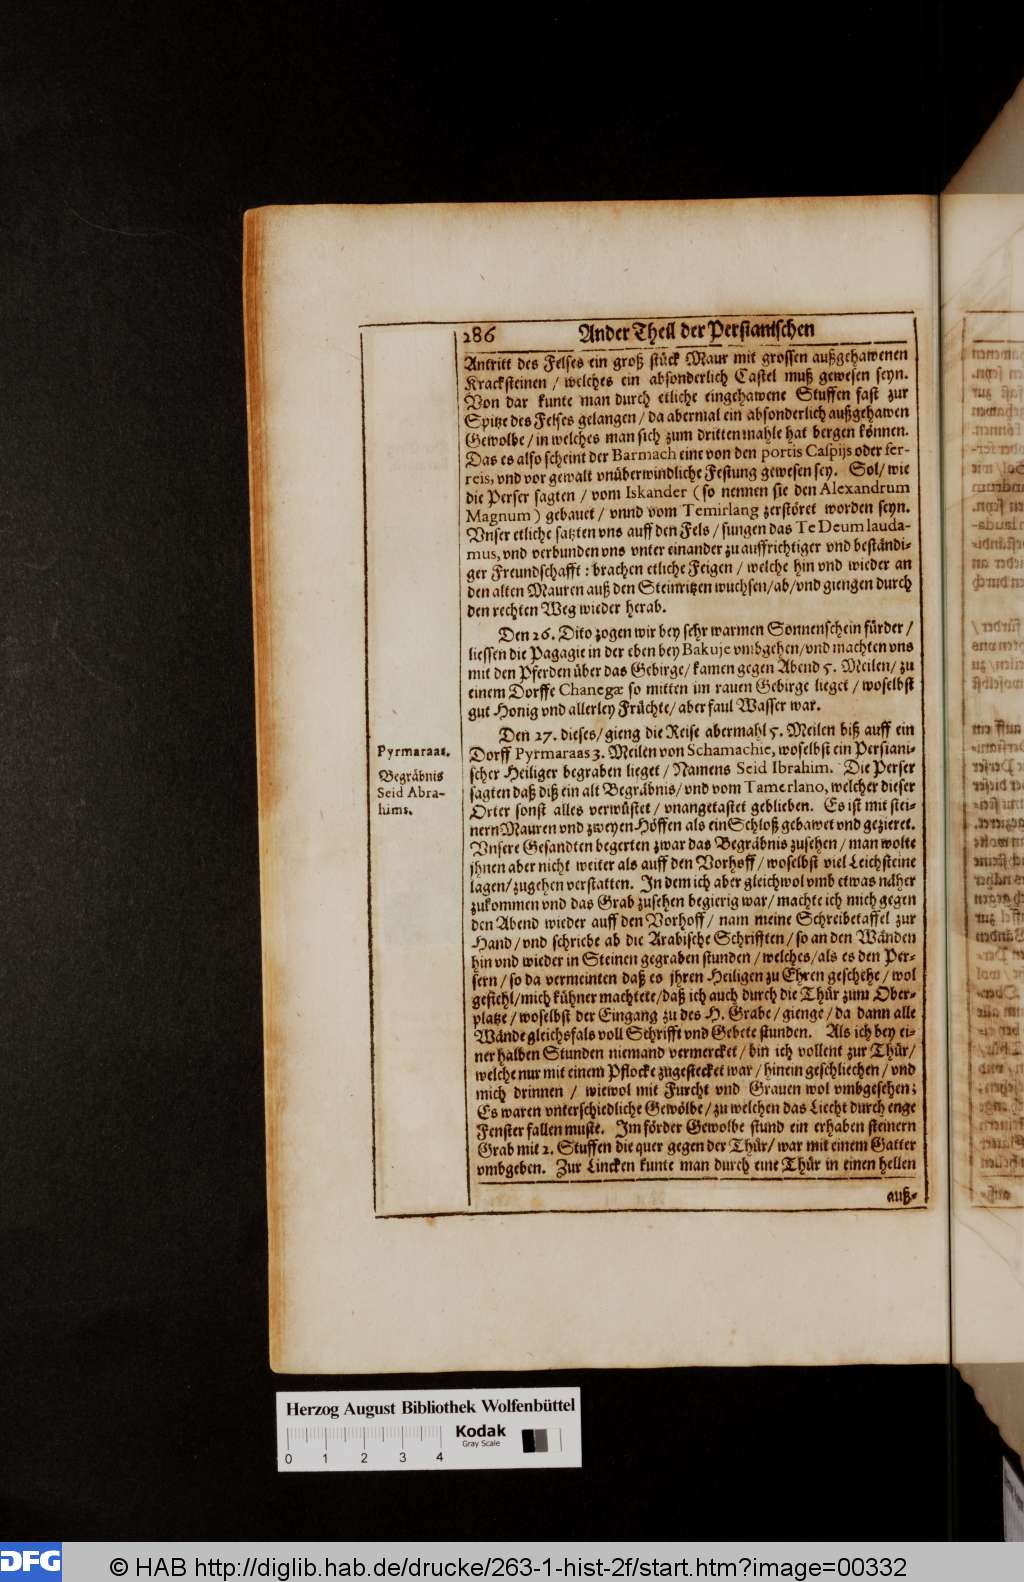 286 Ander Theil der Persianischen
Antritt des Felses ein groß stück Maur mit grossen außgehawenen
Kracksteinen / welches ein absonderlich Castel muß gewesen seyn.
Von dar kunte man durch etliche eingehawene Stuffen fast zur
Spitze des Felses gelangen / da abermal ein absonderlich außgehawen
Gewolbe / in welches man sich zum dritten mahle hat bergen können.
Das es also scheint der Barmach eine von den portis Caspijs oder fer-
reis, vnd vor gewalt vnüberwindliche Festung gewesen sey. Sol / wie
die Perser sagten / vom Iskander ( so nennen sie den Alexandrum
Magnum ) gebauet / vnnd vom Temirlang zerstöret worden seyn.
Vnser etliche satzten vns auff den Fels / sungen das Te Deum lauda-
mus, vnd verbunden vns vnter einander zu auffrichtiger vnd beständi-
ger Freundschafft : brachen etliche Feigen / welche hin vnd wieder an
den alten Mauren auß den Steinritzen wuchsen / ab / vnd giengen durch
den rechten Weg wieder herab.
Den 26. Dito zogen wir bey sehr warmen Sonnenschein fürder /
liessen die Pagagie in der eben bey Bakuje vmbgehen / vnd machten vns
mit den Pferden über das Gebirge / kamen gegen Abend 5. Meilen / zu
einem Dorffe Chanegæ so mitten im rauen Gebirge lieget / woselbst
gut Honig vnd allerley Früchte / aber faul Wasser war.
Den 27. dieses / gieng die Reise abermahl 5. Meilen biß auff ein
Pyrmaraas.
Dorff Pyrmaraas 3. Meilen von Schamachie, woselbst ein Persiani-
Begräbnis
Seid Abra-
hims.
scher Heiliger begraben lieget / Namens Seid Ibrahim. Die Perser
sagten daß diß ein alt Begräbnis / vnd vom Tamerlano, welcher dieser
Orter sonst alles verwüstet / vnangetastet geblieben. Es ist mit stei-
nern Mauren vnd zweyen Höffen als ein Schloß gebawet vnd gezieret.
Vnsere Gesandten begerten zwar das Begräbnis zusehen / man wolte
jhnen aber nicht weiter als auff den Vorhoff / woselbst viel Leichsteine
lagen / zugehen verstatten. In dem ich aber gleichwol vmb etwas näher
zukommen vnd das Grab zusehen begierig war / machte ich mich gegen
den Abend wieder auff den Vorhoff / nam meine Schreibetaffel zur
Hand / vnd schriebe ab die Arabische Schrifften / so an den Wänden
hin vnd wieder in Steinen gegraben stunden / welches / als es den Per-
sern / so da vermeinten daß es jhren Heiligen zu Ehren geschehe / wol
gefiehl / mich kühner machtete / daß ich auch durch die Thür zum Ober-
platze / woselbst der Eingang zu des H. Grabe / gienge / da dann alle
Wände gleichsfals voll Schrifft vnd Gebete stunden. Als ich bey ei-
ner halben Stunden niemand vermercket / bin ich vollent zur Thür /
welche nur mit einem Pflocke zugestecket war / hinein geschliechen / vnd
mich drinnen / wiewol mit Furcht vnd Grauen wol vmbgesehen;
Es waren vnterschiedliche Gewölbe / zu welchen das Liecht durch enge
Fenster fallen muste. Im förder Gewolbe stund ein erhaben steinern
Grab mit 2. Stuffen die quer gegen der Thür / war mit einem Gatter
vmbgeben. Zur Lincken kunte man durch eine Thür in einen hellen
auß-
Herzog August Bibliothek Wolfenbüttel
Kodak
Gray Scale
0 1 2 3 4
DFG © HAB http://diglib.hab.de/drucke/263-1-hist-2f/start.htm?image=00332